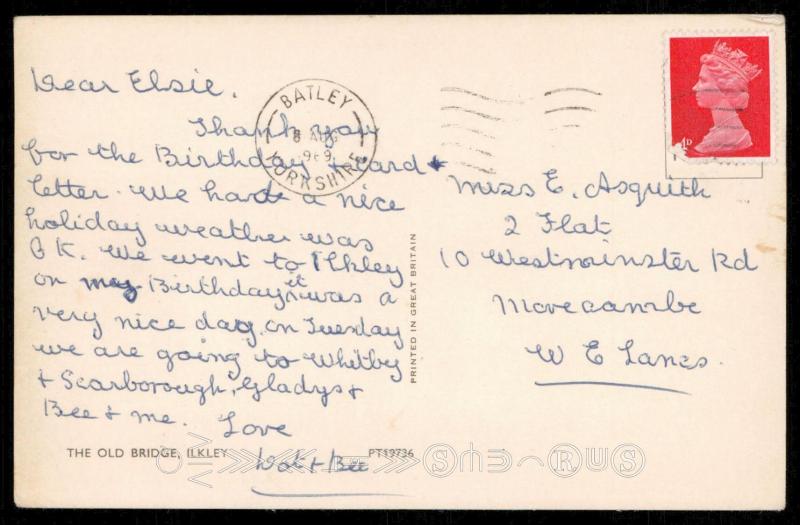 Dear Elsie,
Thank you
for the Birthday card +
letter. We had a nice
holiday weather was
O K. We went to Ilkley
on my Birthday, it was a
very nice day, on Tuesday
we are going to Whitby
+ Scarborough, Gladys +
Bee + me.
Love
Dot + Bee
THE OLD BRIDGE, ILKLEY
PT19736
PRINTED IN GREAT BRITAIN
BATLEY
8 AUG
1969
YORKSHIRE
Miss E. Asquith
2 Flat
10 Westminster Rd
Morecambe
W E Lancs.